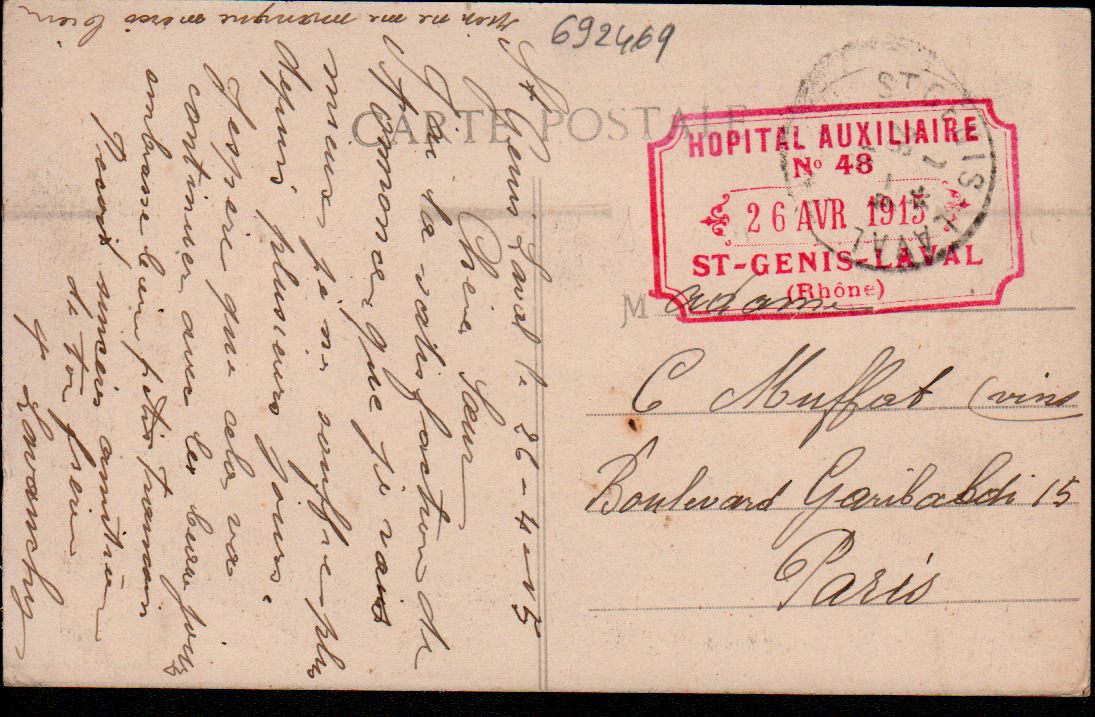 692469
CARTE POSTALE
ST GENIS-LAVAL
HOPITAL AUXILIAIRE
No 48
26 AVR 1915
ST-GENIS-LAVAL
(Rhône)
Madame
C Muffat (vins
Boulevard Garibaldi 15
Paris
St Genis Laval le 26-4-15
Chère Sœur
J'ai la satisfaction de
t'annoncer que je vais
mieux je ne souffre plus
depuis plusieurs jours.
J'espère que cela va
continuer avec les beaux jours
embrasse bien
Reçois sincères amitiés
de ton frère
Lavanchy
rien ne me manque merci bien